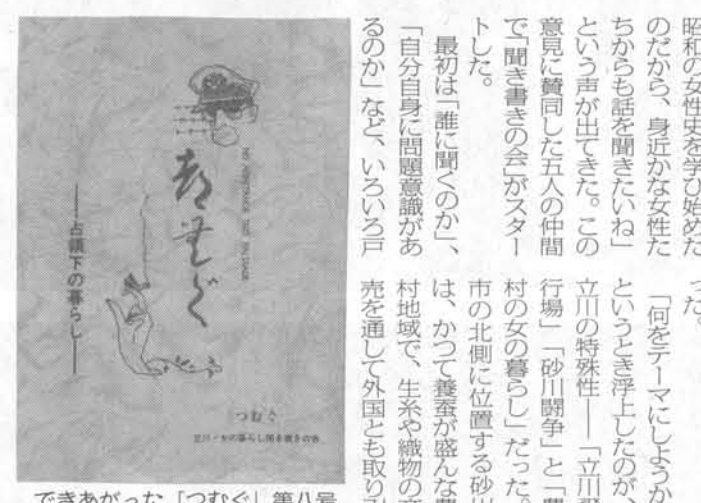 昭和の女性史を学び始めた
のだから、身近かな女性た
ちからも話を聞きたいね」
という声が出てきた。この
意見に賛同した五人の仲間
で「聞き書きの会」がスター
トした。
最初は「誰に聞くのか」、
「自分自身に問題意識があ
るのか」など、いろいろ戸
った。
「何をテーマにしようか
というとき浮上したのが
立川の特殊性――「立川飛
行場」「砂川闘争」と「農
村の女の暮らし」だった。
市の北側に位置する砂川
は、かつて養蚕が盛んな農
村地域で、生糸や織物の商
売を通して外国とも取り引
つむぐ
――占領下の暮らし――
つむぐ
立川・女の暮らし聞き書きの会
できあがった「つむぐ」第八号